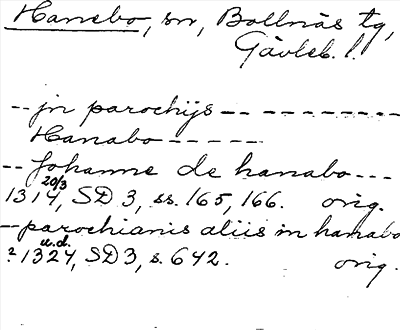 Hanebo, sn, Bollnäs tg,
Gävleb. l.
-- jn parochijs -- -- -- -- -- -- --
Hanabo -- -- -- --
-- Johanne de hanabo ---
20/3
1314, SD 3, ss. 165, 166. orig.
- parochianis aliis in hanabo
u.d.
? 1324, SD 3, s. 642. orig.